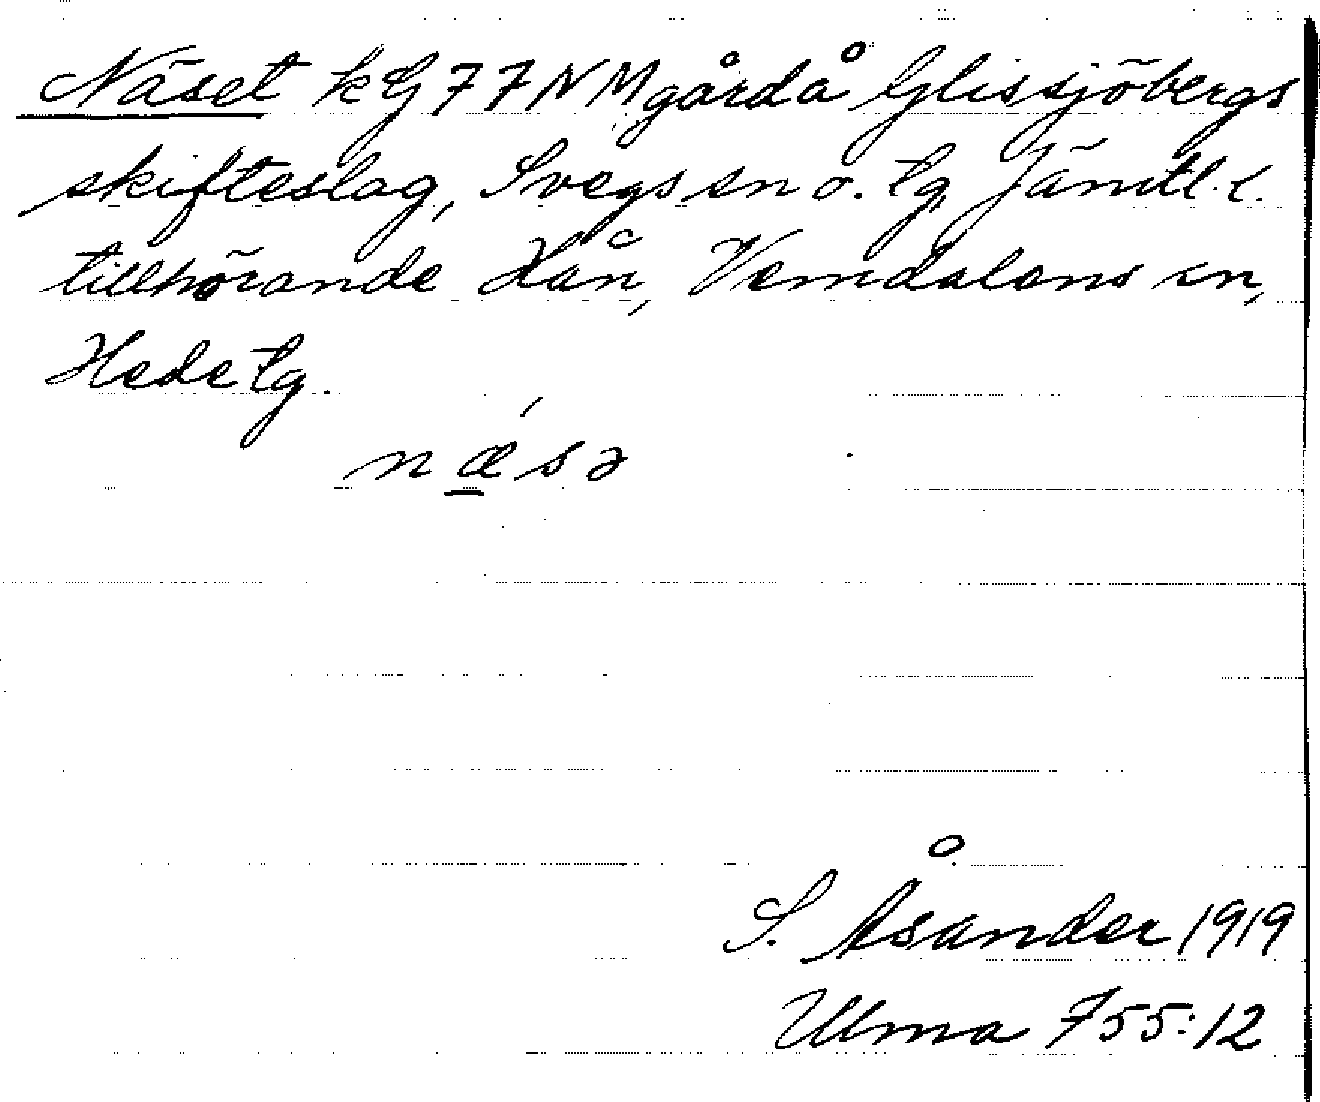 Näset kG 77NM gård å Glissjöbergs
skifteslag, Svegs sn o. tg Jämtl. l.
tillhörande Hån, Vemdalens sn,
Hede tg.
næ´sə
S. Åsander 1919
Ulma 755:12